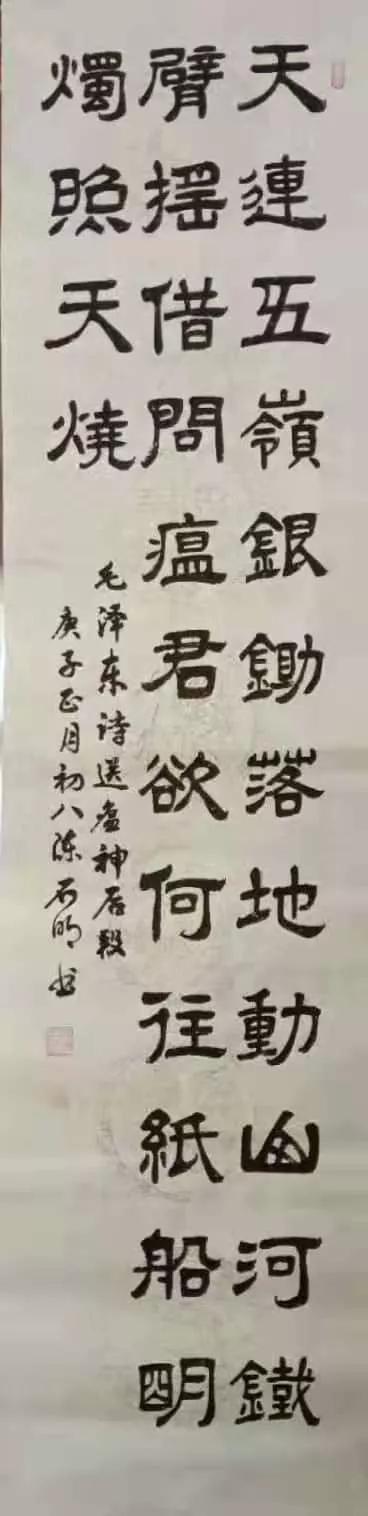 天連五嶺銀鋤落地動山河鐵
臂揺借問瘟君欲何往紙船明
燭照天燒
毛泽东诗送瘟神后段
庚子正月初八陈石明书